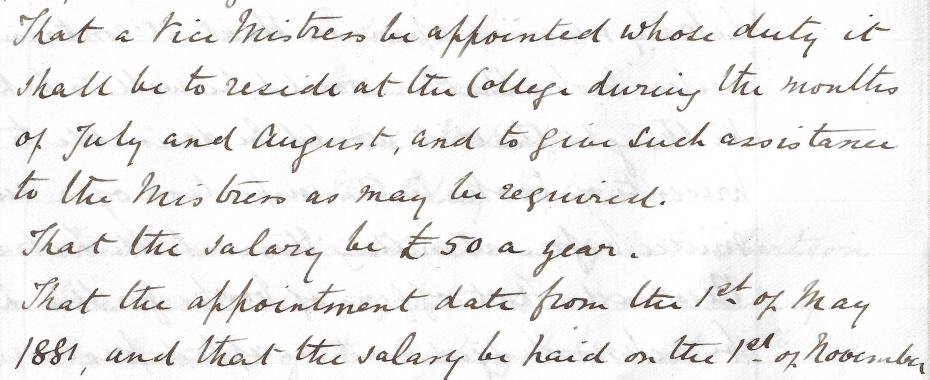 That a Vice Mistress be appointed whose duty it
shall be to reside at the College during the months
of July and August, and to give such assistance
to the Mistress as may be required.
That the salary be £50 a year.
That the appointment date from the 1st of May
1881, and that the salary be paid on the 1st of November